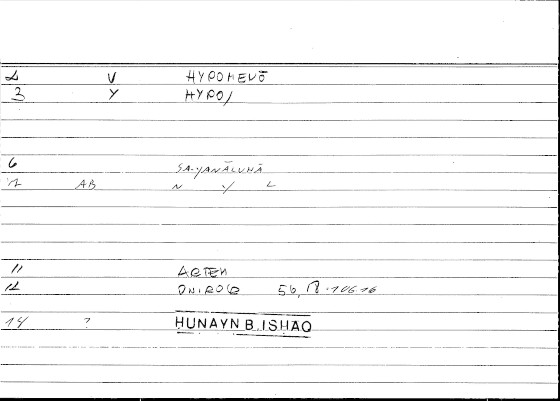 2 V HYPOMENŌ
3 Y HYPO/
6 SAYANĀLUHĀ
7 AB N Y L
11 ARTEM
12 ONIROC 56, 18 - 106 16
14 ? HUNAYN B. ISHAQ